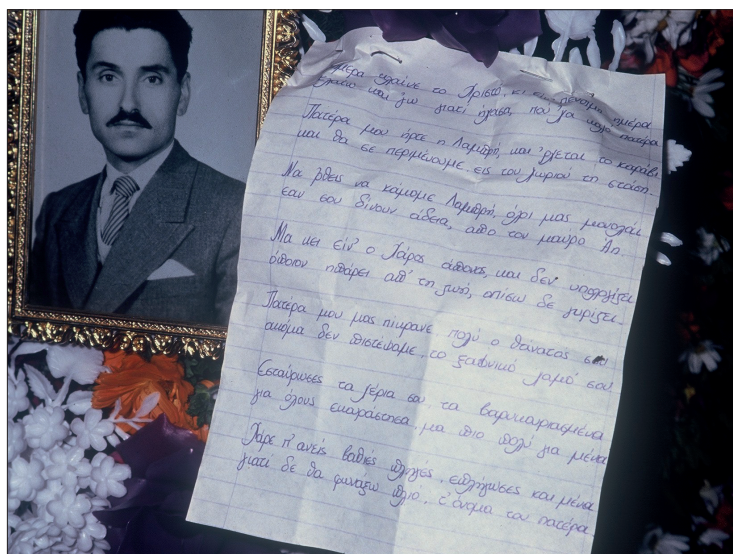 κλαίνε το Χριστό, κι ημέρα
κλαίω και γω γιατί ήχασα, που χα καλό πατέρα
Πατέρα μου ήρτε η Λαμπρή, και ρχεται το καράβι
και θα σε περιμένουμε εις του χωριού τη στάση
Να ρθεις να κάμομε Λαμπρή, όλοι μας μοναχοί
εαν σου δίνουν άδεια, απο τον μαυρο Άη
Μα κει είν' ο Χάρος άπονος, και δεν υπολοήζει
όποιον πάρει απ' τη ζωή, οπίσω δε γυρίζει
Πατέρα μου μας πίκρανε πολύ ο θανατος σου
ακόμα δεν πιστεύομε, το ξαφνικό χαμό σου
Εσταύρωσες τα χέρια σου τα βαρυκουρασμένα
για όλους εκουράστηκα, μα πιο πολύ για μένα
Χάρε π' ανείς βαθιές πληγές, επλήγωσες και μένα
γιατί δε θα φωνάξω πλιο, τ' όνομα του πατέρα